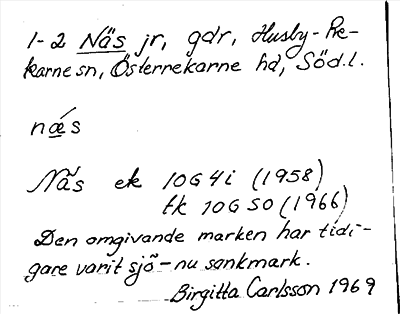 1-2 Näs jr, gdr, Husby-Re-
karne sn, Österrekarne hd, Söd.l.
næs
Näs ek 10G 4i (1958)
tk 10G SO (1966)
Den omgivande marken har tidi-
gare varit sjö - nu sankmark.
Birgitta Carlsson 1969